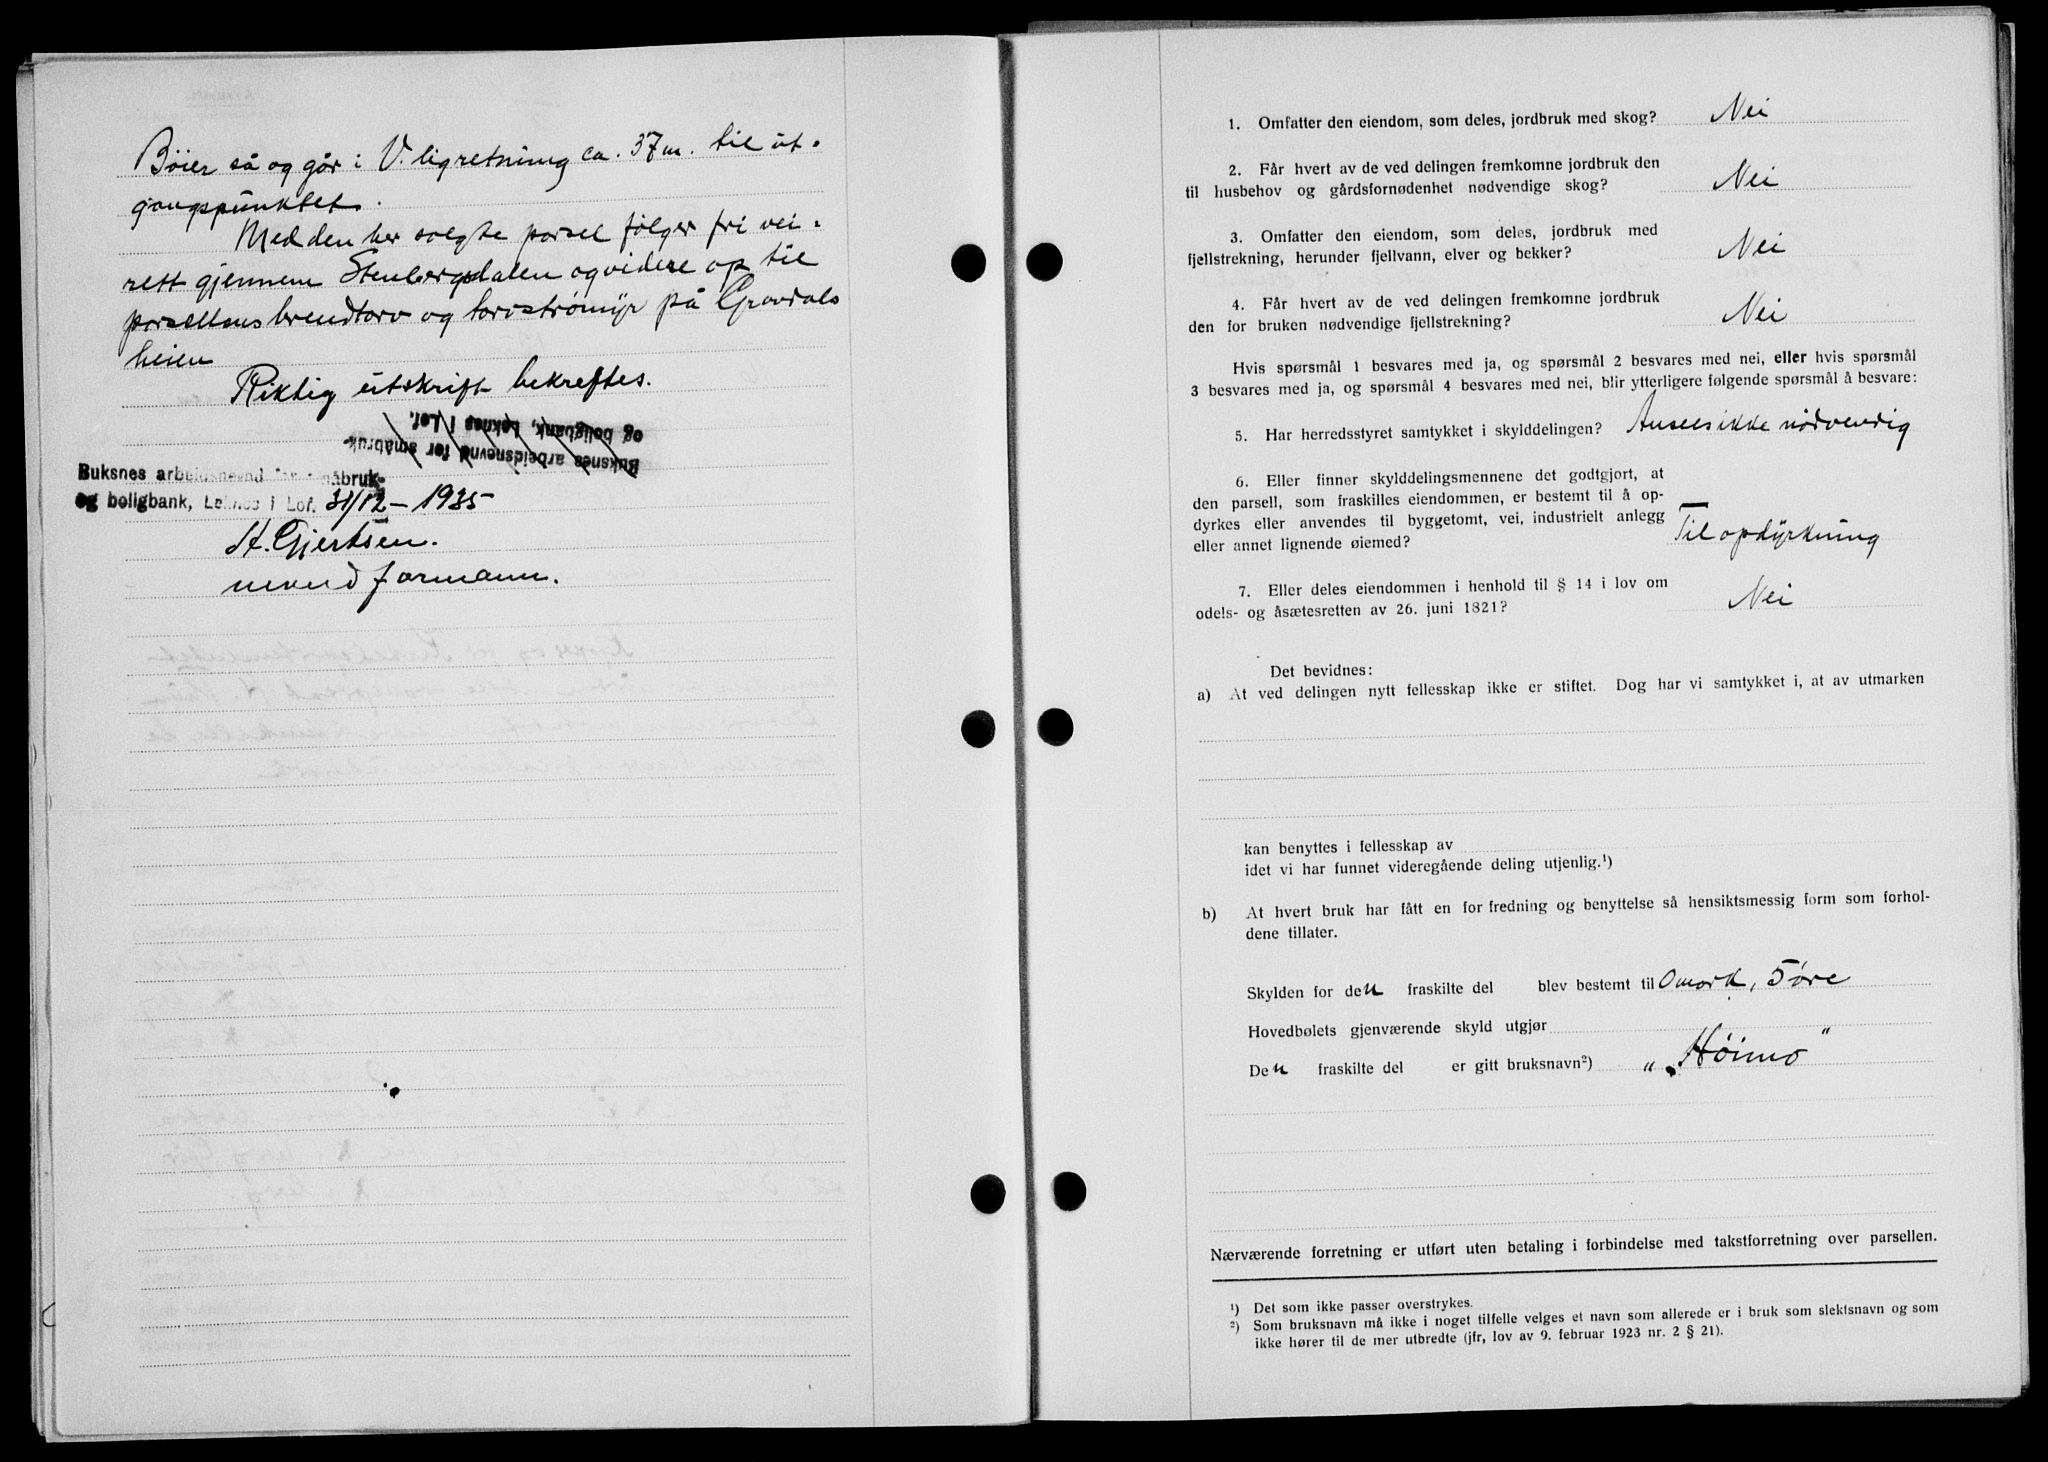 Bøier så og går i V.ligretning ca. 37 m. til ut-
gangspunktet.
Med den her solgte parsel følger fri vei-
rett gjennem Stenbergdalen og videre op til
parsellens brendtorv og torvstrømyr på Gravdals
heien
Riktig utskrift bekreftes.
Buksnes arbeidsnevnd for småbruk-
og boligbank, Leknes i Lof.
Buksnes arbeidsnevnd for småbruk-
og boligbank, Leknes i Lof. 31/12 - 1935
A. Gjertsen.
nevnd formann.
1. Omfatter den eiendom, som deles, jordbruk med skog? Nei
2. Får hvert av de ved delingen fremkomne jordbruk den
til husbehov og gårdsfornødenhet nødvendige skog? Nei
3. Omfatter den eiendom, som deles, jordbruk med
fjellstrekning, herunder fjellvann, elver og bekker? Nei
4. Får hvert av de ved delingen fremkomne jordbruk
den for bruken nødvendige fjellstrekning? Nei
Hvis spørsmål 1 besvares med ja, og spørsmål 2 besvares med nei, eller hvis spørsmål
3 besvares med ja, og spørsmål 4 besvares med nei, blir ytterligere følgende spørsmål å besvare:
5. Har herredsstyret samtykket i skylddelingen? Ansees ikke nødvendig
6. Eller finner skylddelingsmennene det godtgjort, at
den parsell, som fraskilles eiendommen, er bestemt til å op-
dyrkes eller anvendes til byggetomt, vei, industrielt anlegg
eller annet lignende øiemed? Til opdyrkning
7. Eller deles eiendommen i henhold til § 14 i lov om
odels- og åsætesretten av 26. juni 1821? Nei
Det bevidnes:
a) At ved delingen nytt fellesskap ikke er stiftet. Dog har vi samtykket i, at av utmarken
kan benyttes i fellesskap av
idet vi har funnet videregående deling utjenlig.¹)
b) At hvert bruk har fått en for fredning og benyttelse så hensiktsmessig form som forhol-
dene tillater.
Skylden for den fraskilte del blev bestemt til 0 mark, 5 øre
Hovedbølets gjenværende skyld utgjør
Den fraskilte del er gitt bruksnavn²) „Høimo“
Nærværende forretning er utført uten betaling i forbindelse med takstforretning over parsellen.
¹) Det som ikke passer overstrykes.
²) Som bruksnavn må ikke i noget tilfelle velges et navn som allerede er i bruk som slektsnavn og som
ikke hører til de mer utbredte (jfr, lov av 9. februar 1923 nr. 2 § 21).